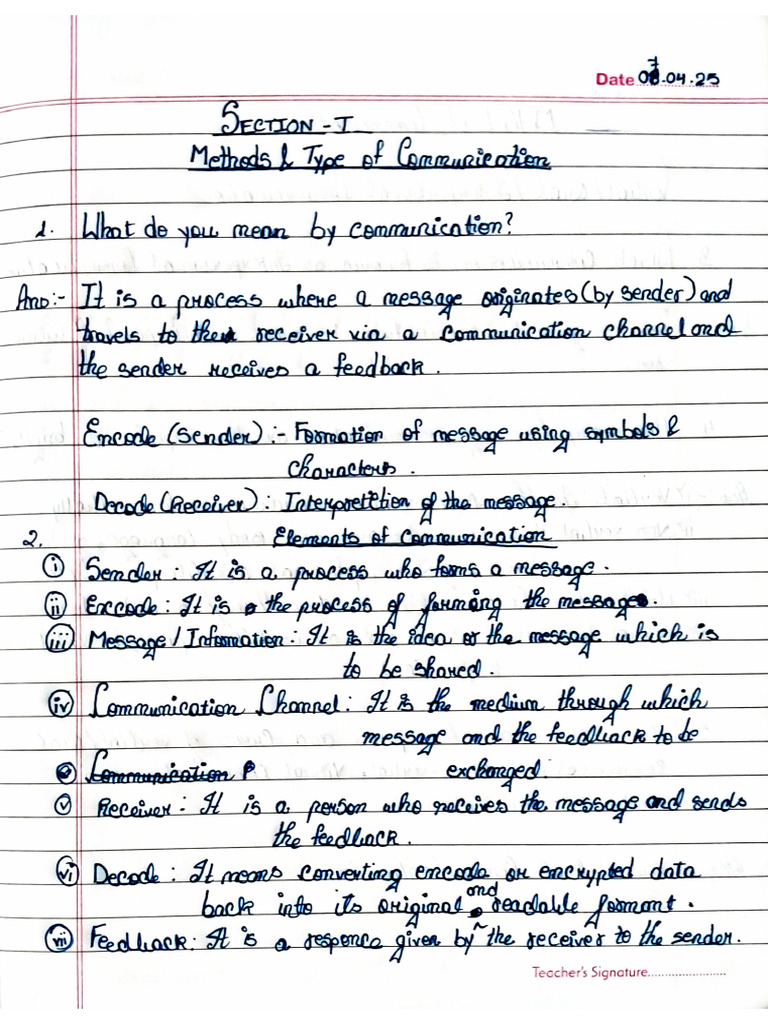 Date 07.04.25
SECTION - I
Methods & Type of Communication
1. What do you mean by communication?
Ans:- It is a process where a message originates (by sender) and
travels to the receiver via a communication channel and
the sender receives a feedback.
Encode (Sender) :- Formation of message using symbols &
characters.
Decode (Receiver) : Interpretetion of the message.
2. Elements of Communication
(i) Sender : It is a process who forms a message.
(ii) Encode : It is the process of forming the message.
(iii) Message / Information : It is the idea or the message which is
to be shared.
(iv) Communication Channel : It is the medium through which
message and the feedback to be
Communication exchanged.
(v) Receiver : It is a person who receives the message and sends
the feedback.
(vi) Decode : It means converting encode or encrypted data
back into its original and readable formant.
(vii) Feedback : It is a responce given by the receiver to the sender.
Teacher's Signature........................